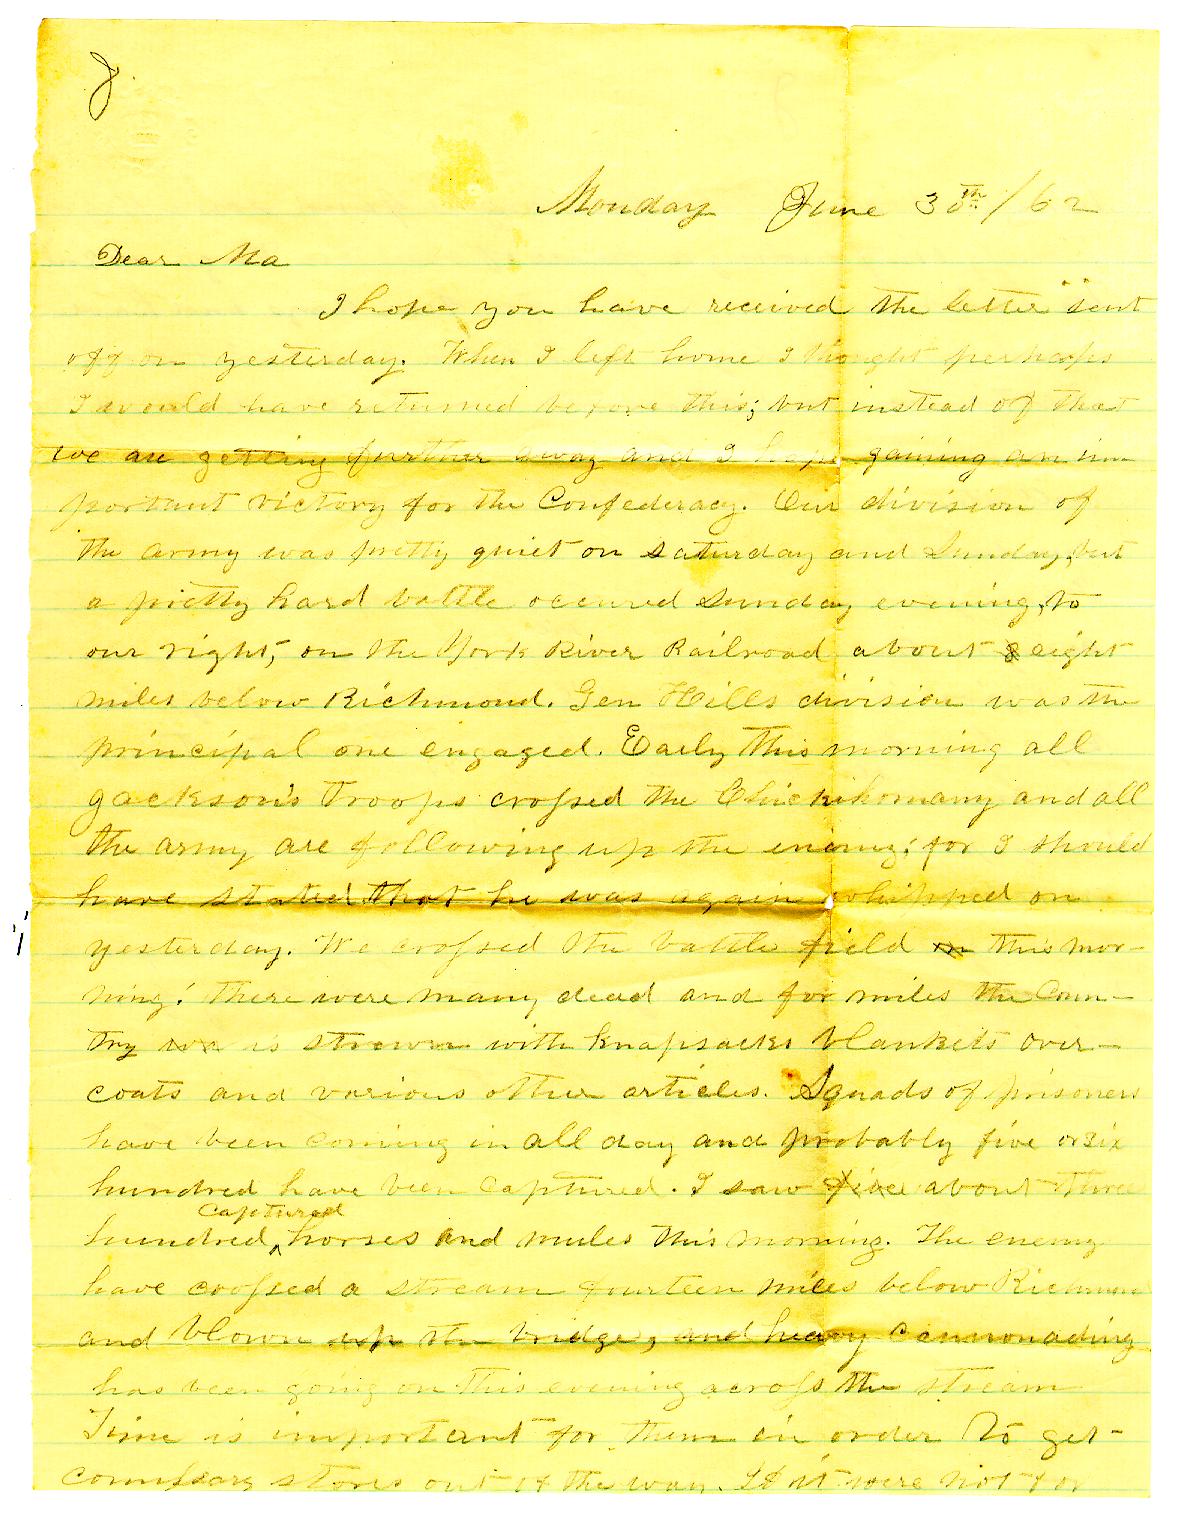 Monday June 30th /62
Dear Ma
I hope you have received the letter sent
off on yesterday. When I left home I thought perhaps
I would have returned before this; but instead of that
we are getting further away and I hope gaining an im
portant victory for the Confederacy. Our division of
the army was pretty quiet on Saturday and Sunday, but
a pretty hard battle occured Sunday evening, to
our right, on the York River Railroad about eight
miles below Richmond. Gen Hills division was the
principal one engaged. Early this morning all
Jackson's troops crossed the Chickihomany and all
the army are following up the enimy; for I should
have stated that he was again whipped on
yesterday. We crossed the battle field this mor-
ning; there were many dead and for miles the Coun-
try is strewn with knapsacks blankets over-
coats and various other articles. Squads of prisoners
have been coming in all day and probably five or six
hundred have been captured. I saw five about three
hundred captured horses and mules this morning. The enemy
have crossed a stream fourteen miles below Richmond
and blown up the bridge, and heavy cannonading
has been going on this evening across the stream
Time is important for them in order to get
commissary stores out of the way. If it were not for